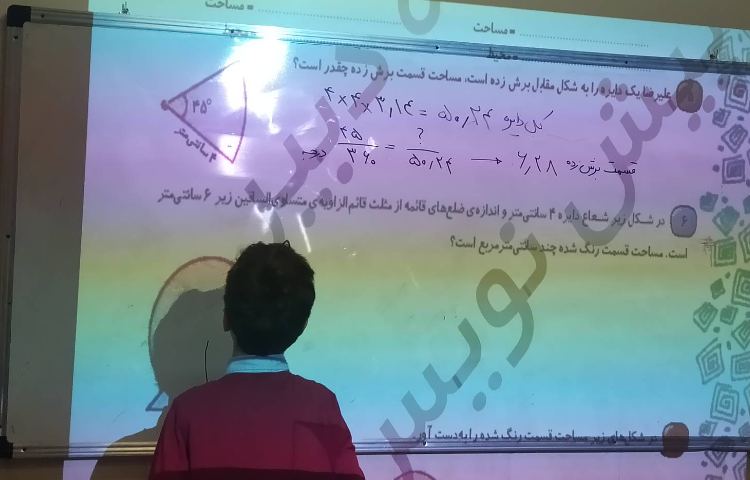 مساحت
مساحت
محیط
علیرضا یک دایره را به شکل مقابل برش زده است، مساحت قسمت برش زده چقدر است؟
۴۵°
۴ سانتی‌متر
کل دایره ۴×۴×۳٫۱۴ = ۵۰٫۲۴
قسمت برش زده ۶٫۲۸ ← ?/۵۰٫۲۴ = ۴۵/۳۶۰ درجه
۶ در شکل زیر شعاع دایره ۴ سانتی‌متر و اندازه‌ی ضلع‌های قائمه از مثلث قائم‌الزاویه‌ی متساوی‌الساقین زیر ۶ سانتی‌متر
است. مساحت قسمت رنگ شده چند سانتی‌متر مربع است؟
در شکل‌های زیر مساحت قسمت رنگ شده را به‌دست آور